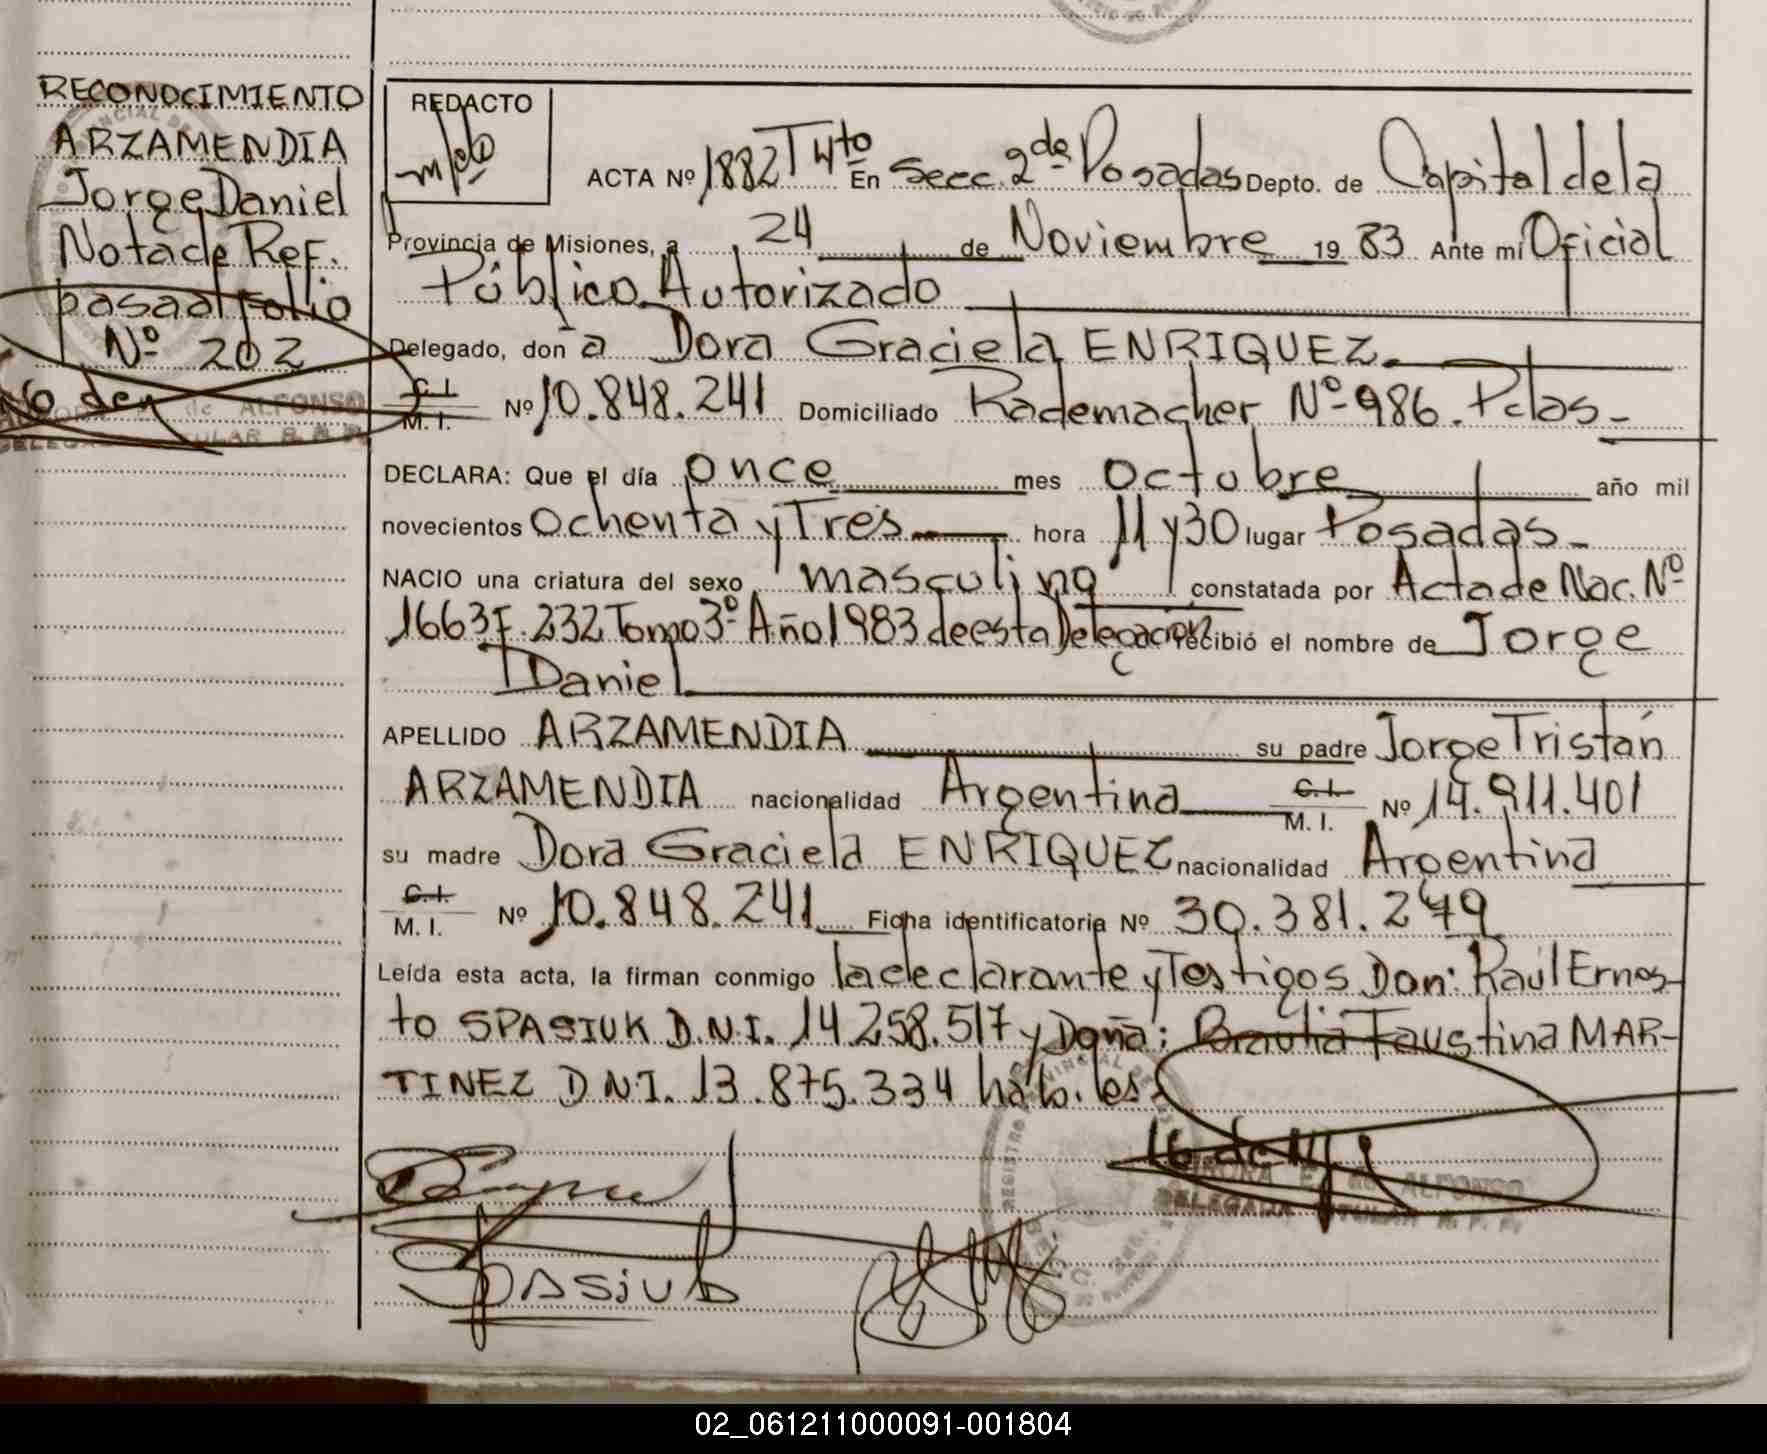 RECONOCIMIENTO
ARZAMENDIA
Jorge Daniel
Nota de Ref.
pasa al Folio
Nº 202
de ALFONSO
REDACTO
ACTA Nº 1882 T 4to En Secc. 2da Posadas Depto. de Capital de la
Provincia de Misiones, a 24 de Noviembre 19 83 Ante mí Oficial
Público Autorizado
Delegado, don a Dora Graciela ENRIQUEZ.
C.I.
M. I. Nº 10.848.241 Domiciliado Rademacher Nº 986. Pdas-
DECLARA: Que el día once mes octubre año mil
novecientos ochenta y Tres hora 11 y 30 lugar Posadas-
NACIO una criatura del sexo masculino constatada por Acta de Nac. Nº
1663 F. 232 Tomo 3º Año 1983 de esta Delegacion recibió el nombre de Jorge
Daniel
APELLIDO ARZAMENDIA su padre Jorge Tristán
ARZAMENDIA nacionalidad Argentina C.I. M. I. Nº 14.911.401
su madre Dora Graciela ENRIQUEZ nacionalidad Argentina
C.I.
M. I. Nº 10.848.241 Ficha identificatoria Nº 30.381.279
Leída esta acta, la firman conmigo la declarante y Testigos Don: Raúl Ernes-
to SPASIUK D.N.I. 14.258.517 y Doña: Faustina MAR-
TINEZ D.N.I. 13.875.334 hábiles
REGISTRO PROVINCIAL
ALFONSO
DELEGADA TITULAR R. P. P.
02_061211000091-001804